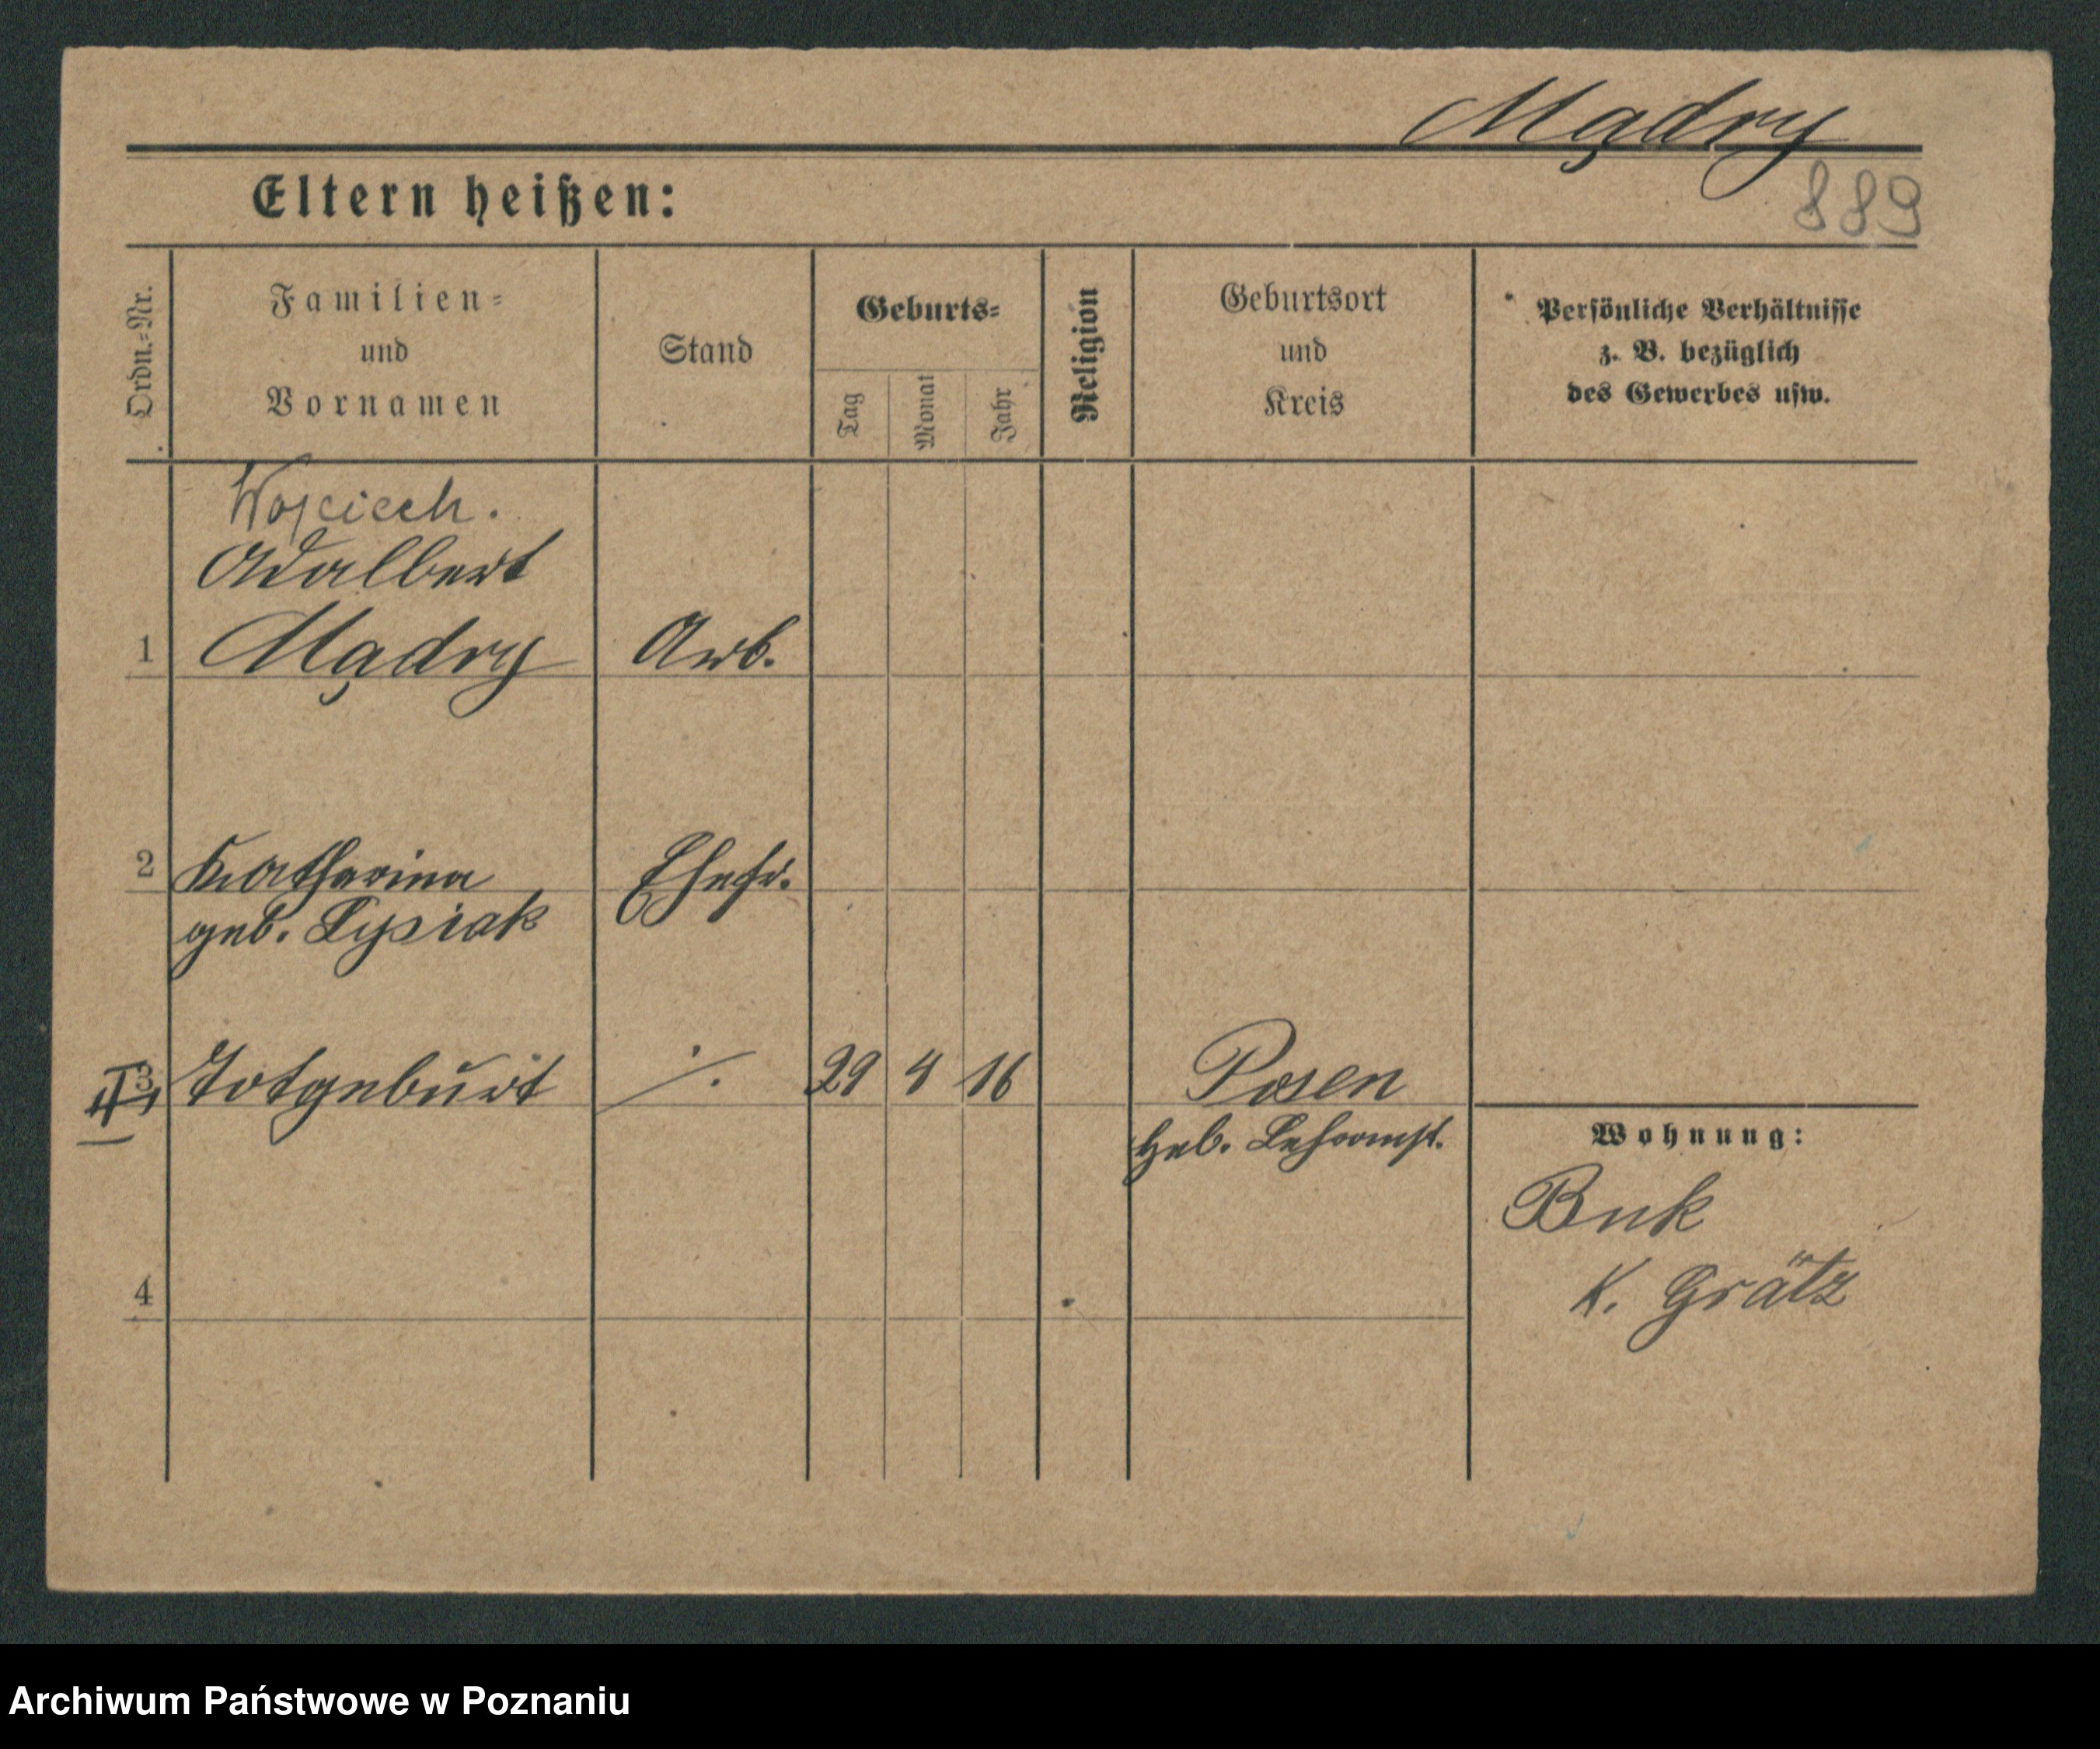 Mądry
889
Eltern heißen:
Ordn.-Nr.
Familien-
und
Vornamen
Stand
Geburts-
Tag
Monat
Jahr
Religion
Geburtsort
und
Kreis
Persönliche Verhältnisse
z. B. bezüglich
des Gewerbes usw.
Wojciech.
Adalbert
1 Mądry Arb.
2 Katharina Ehefr.
geb. Lysiak
3 Totgeburt ·/. 29 4 16 Posen
Heb. Lehranst.
Wohnung:
Buk
K. Grätz
4
Archiwum Państwowe w Poznaniu